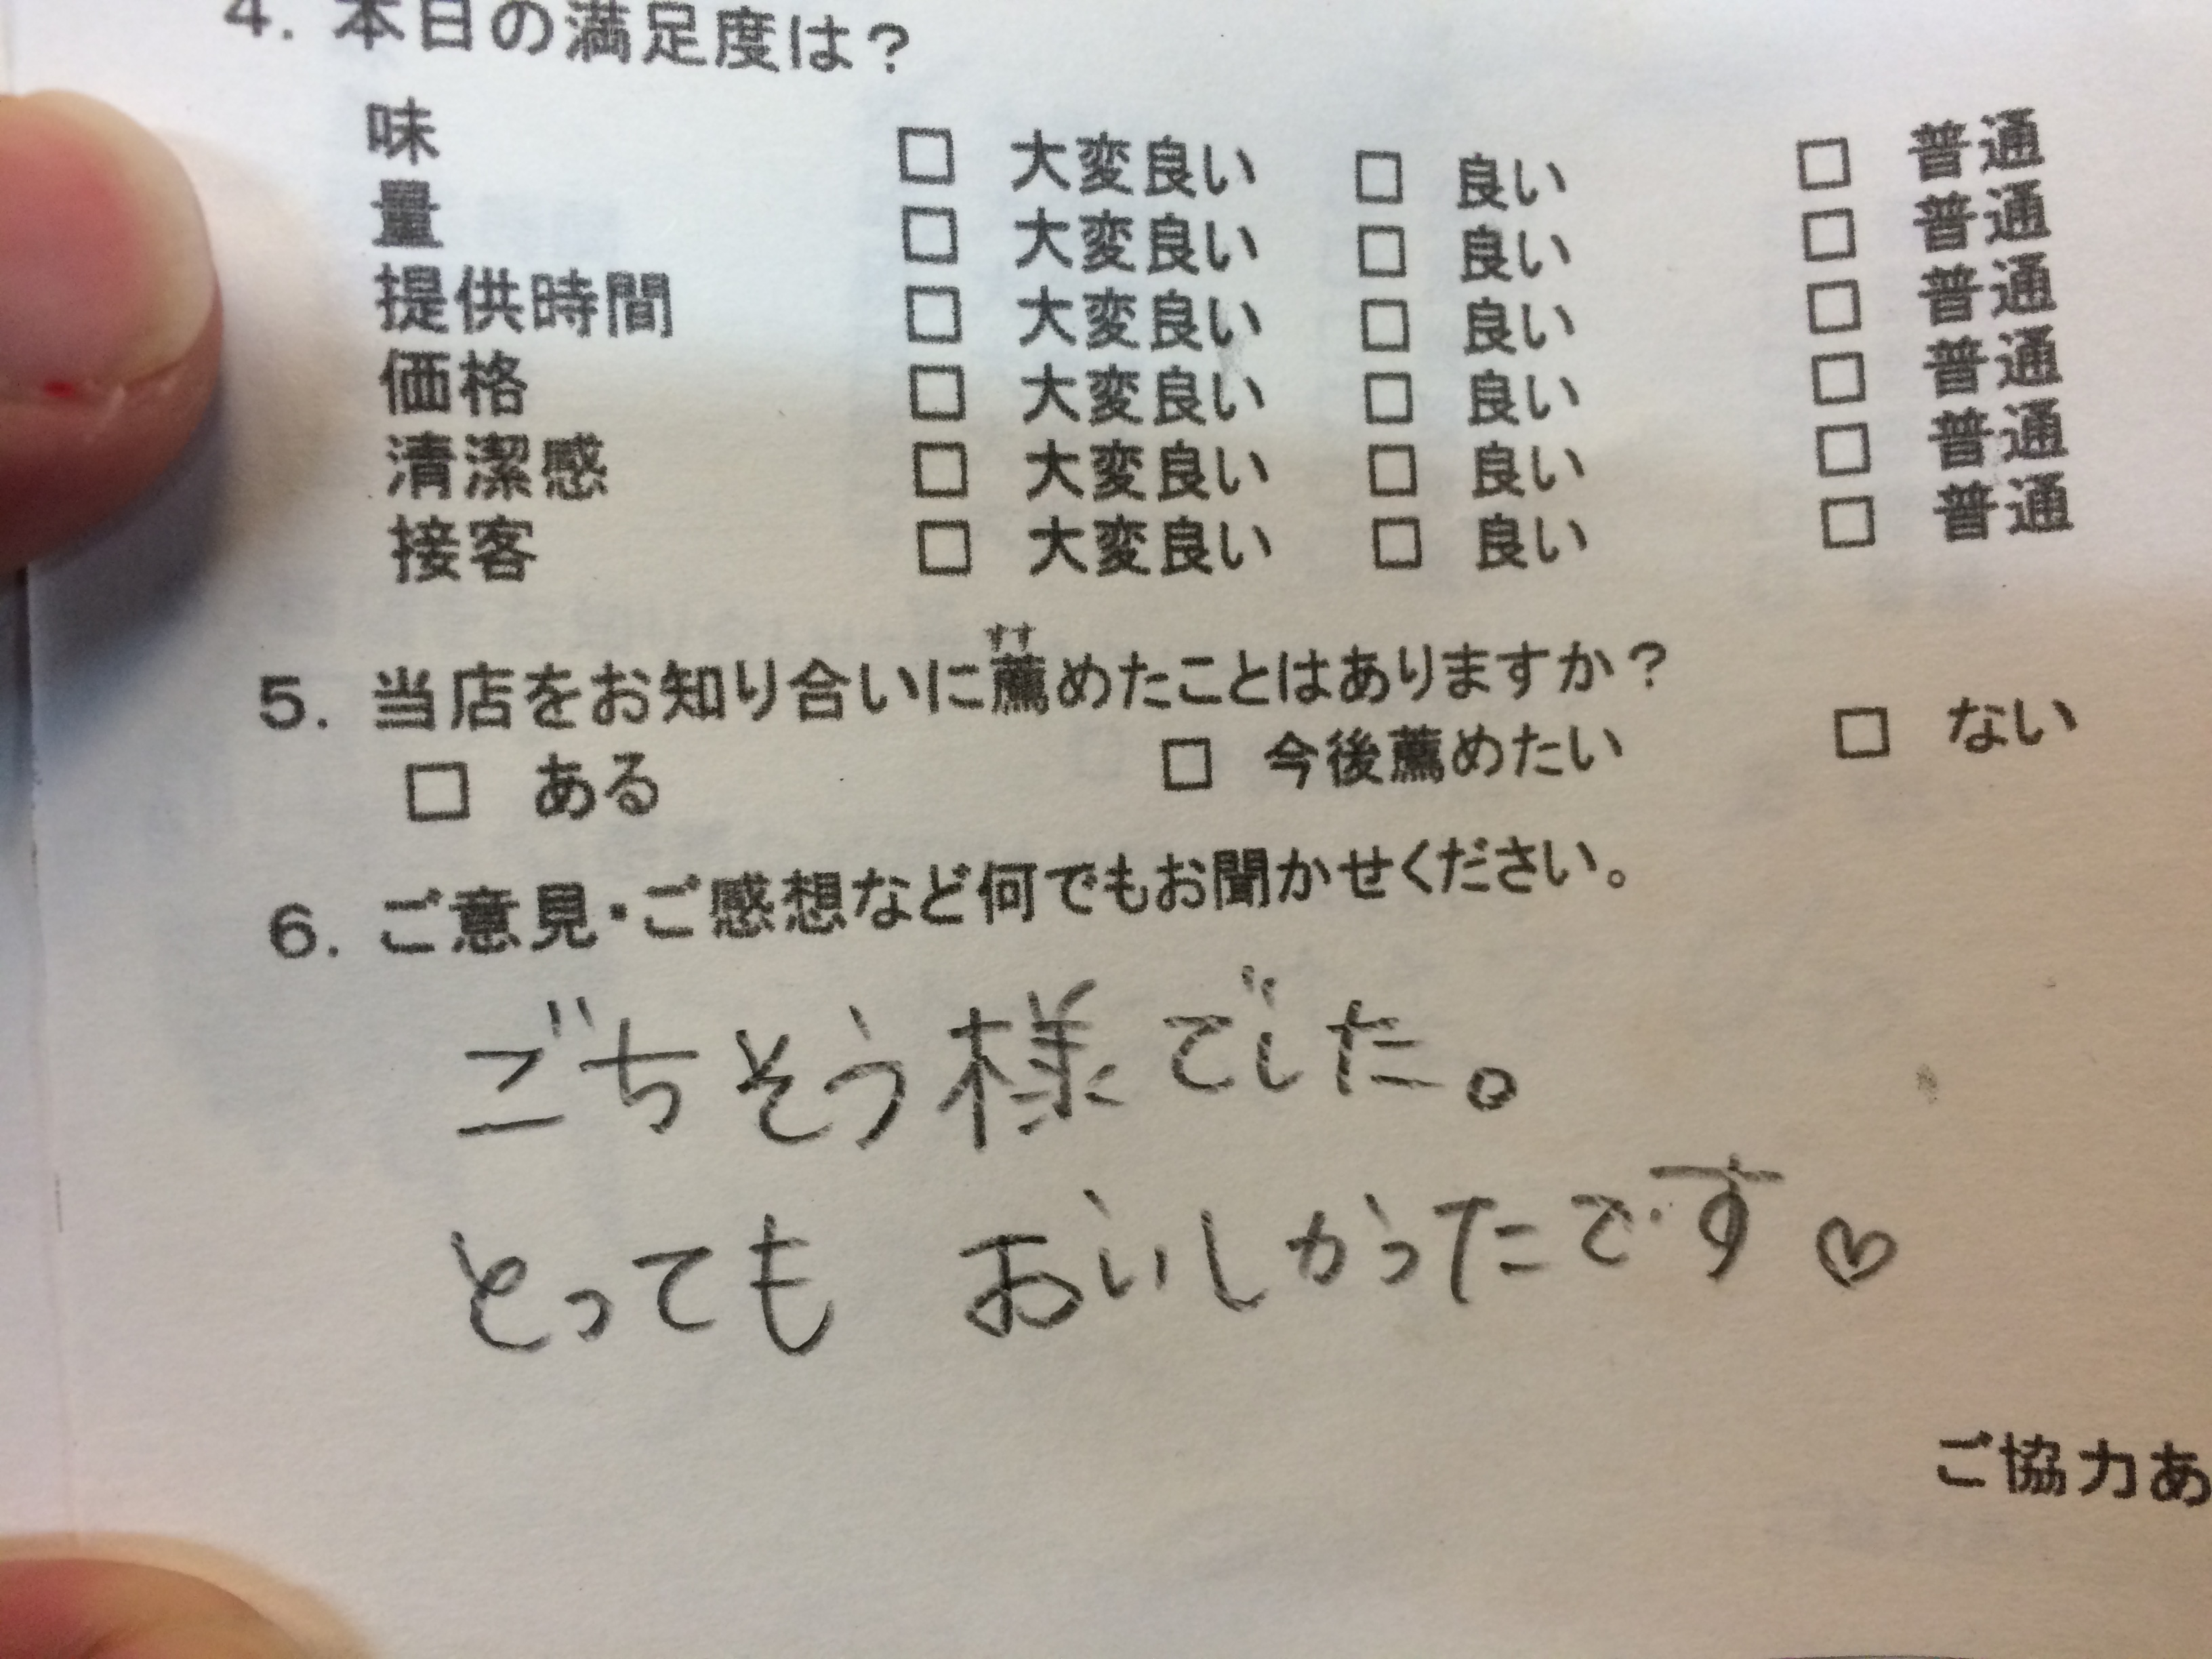 4. 本日の満足度は？
味 □ 大変良い □ 良い □ 普通
量 □ 大変良い □ 良い □ 普通
提供時間 □ 大変良い □ 良い □ 普通
価格 □ 大変良い □ 良い □ 普通
清潔感 □ 大変良い □ 良い □ 普通
接客 □ 大変良い □ 良い □ 普通
5. 当店をお知り合いに薦めたことはありますか？
□ ある □ 今後薦めたい □ ない
6. ご意見・ご感想など何でもお聞かせください。
ごちそう様でした。
とっても おいしかったです♡
ご協力あ